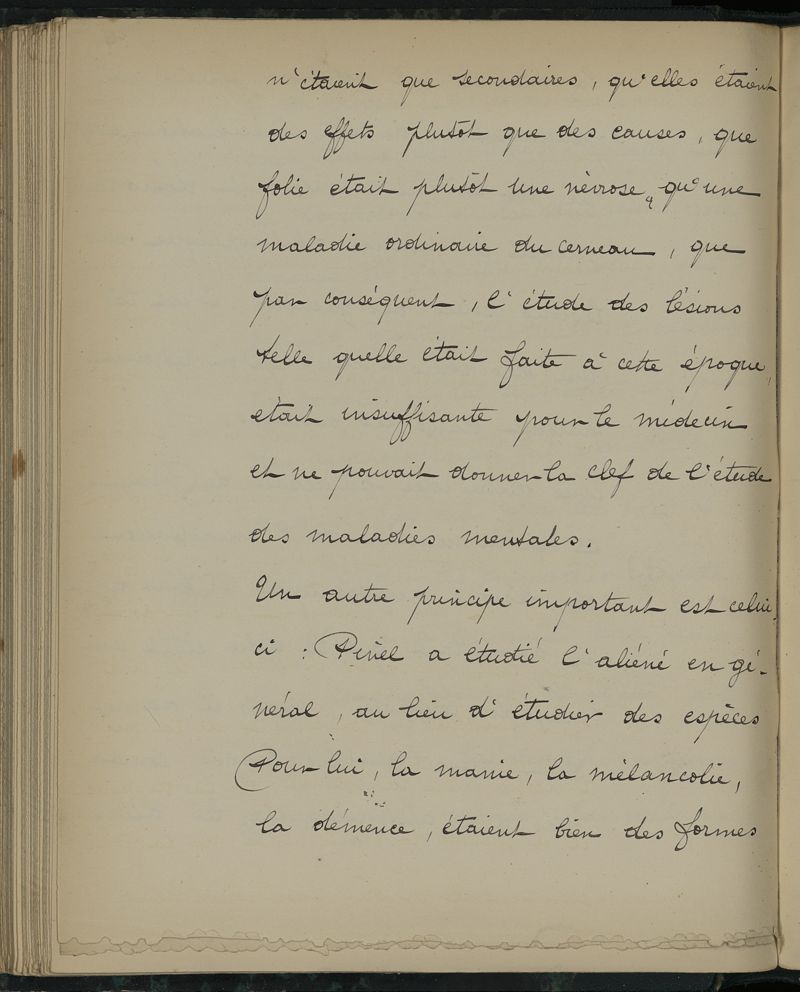 n'étaient que secondaires, qu'elles étaient
des effets plutôt que des causes, que
folie était plutôt une névrose, qu'une
maladie ordinaire du cerveau, que
par conséquent, l'étude des lésions
telle quelle était faite à cette époque,
était insuffisante pour le médecin
et ne pouvait donner la clef de l'étude
des maladies mentales.
Un autre principe important est celui
ci : Pinel a étudié l'aliéné en gé-
néral, au lieu d'étudier des espèces
Pour lui, la manie, la mélancolie,
la démence, étaient bien des formes